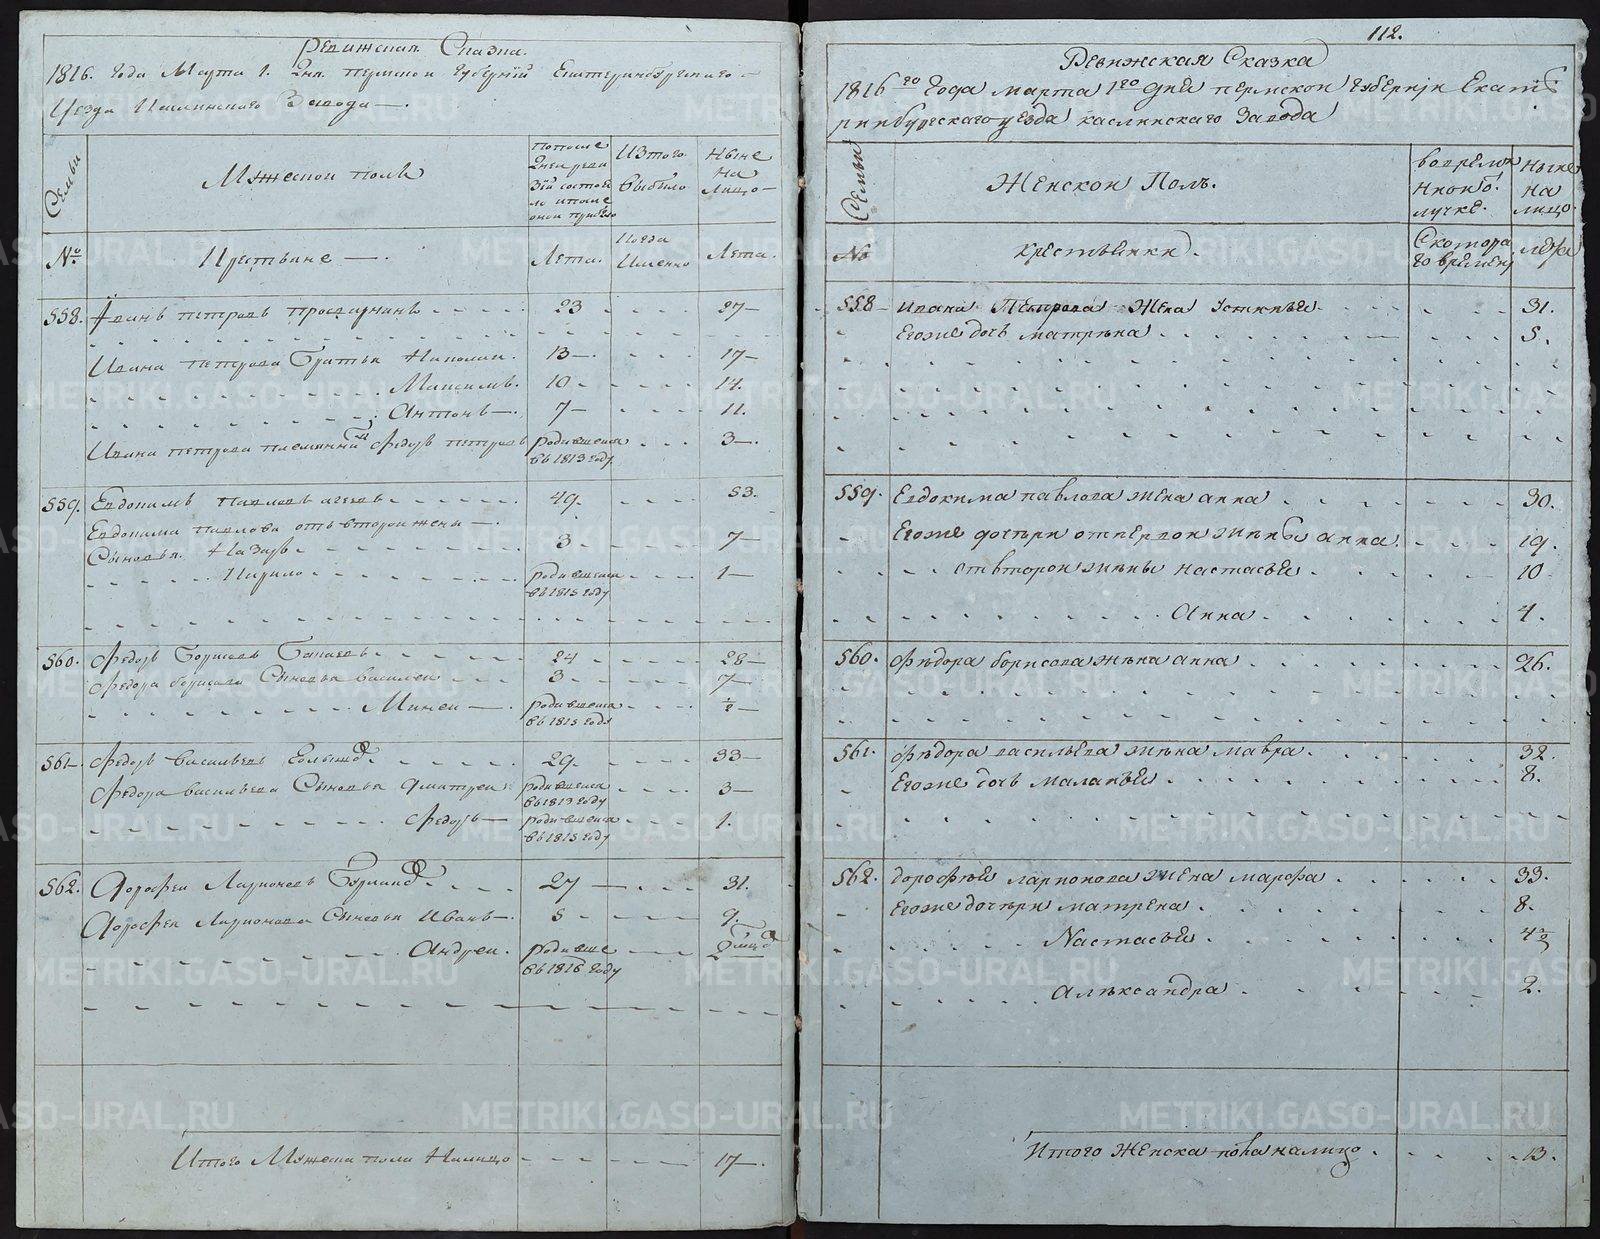 Ревижская Сказка.
1816. года Марта 1. дня. пермской губернїй Екатеринбургскаго
Уезда Каслинского Завода
Семьи
Мужескои полъ
попосле
дней реви
зїй состоя
ло ипосле
Изтого
выбыло
Ныне
на
лицо
№
Крестьяне
Лета.
Когда
Именно
Лета.
558. Иванъ петровъ 23 27
Ивана петрова братья Николаи. 13 17
Максимъ. 10 14.
Антонъ 7 11.
Ивана петрова племянник Федоръ петровъ родившеися 3
въ 1813 году
559. Евдокимъ павловъ агеевъ 49. 53.
Евдокима павлова отъ второи жены
Сыновья. Назаръ 3 7
Кирило родившеися 1
въ 1815 году
560. Федоръ Борисовъ 24 28
Федора борисова Сыновья василеи 3 7
Минеи родившеися ½
въ 1815 году
561 Федоръ васильевъ 29. 33
Федора васильева Сыновья дмитреи родившеися 3
въ 1813 году
Федоръ родившеися 1.
въ 1815 году
562. Дорофеи Ларионовъ 27 31.
Дорофеи Ларионова Сыновья Иванъ 5 9.
Андреи. родивше
въ 1816 году
Итого Мужеска пола Налицо 17
112.
Ревижская Сказка
1816го года марта 1го дня пермскои губернїи Екате
ринбургскаго уезда каслинскаго Завода
Семьи
Женскои Полъ.
вовремян
нкои о
лучке.
Ныне
на
лицо.
№
крестьянки.
Скотора
го времени
лета
558 Ивана Петрова Жена Устинья 31.
Егоже дочь матрена 5.
559. Евдокима павлова жена анна 30.
Егоже дочери от первои жены анна. 19.
отвторои жены настасья 10
Анна 4.
560. Федора борисова жена анна 26.
561. Федора васильева жена мавра. 32.
Егоже дочь маланья 8.
562. дорофея ларионова жена марфа 33.
Егоже дочери матрена 8.
Настасья 4½
Александра 2.
Итого Женска пола налицо 13.
METRIKI.GASO-URAL.RU